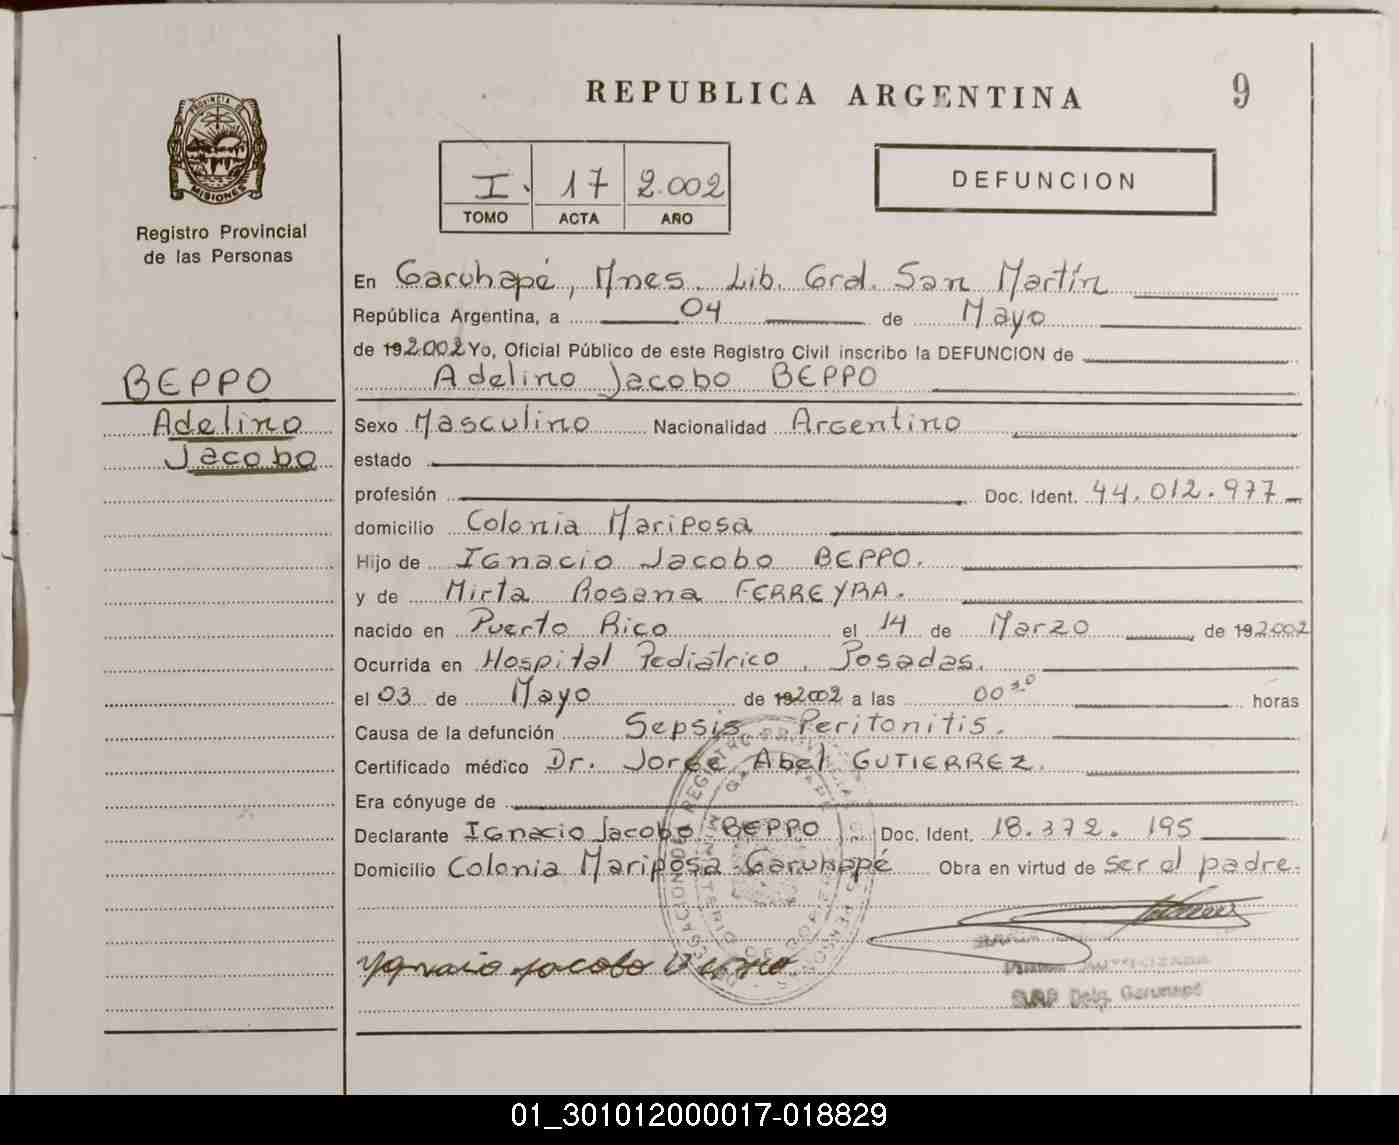 REPUBLICA ARGENTINA
9
PROVINCIA DE
MISIONES
Registro Provincial
de las Personas
I. 17 2.002
TOMO ACTA AÑO
DEFUNCION
En Garuhapé, Mnes. Lib. Gral. San Martín
República Argentina, a 04 de Mayo
de 192.002 Yo, Oficial Público de este Registro Civil inscribo la DEFUNCION de
Adelino Jacobo BEPPO
BEPPO
Adelino
Jacobo
Sexo Masculino Nacionalidad Argentino
estado
profesión Doc. Ident. 44.012.977
domicilio Colonia Mariposa
Hijo de Ignacio Jacobo BEPPO.
y de Mirta Rosana FERREYRA.
nacido en Puerto Rico el 14 de Marzo de 192.002
Ocurrida en Hospital Pediátrico, Posadas.
el 03 de Mayo de 192002 a las 00³⁰ horas
Causa de la defunción Sepsis Peritonitis.
Certificado médico Dr. Jorge Abel GUTIERREZ.
Era cónyuge de
Declarante Ignacio Jacobo BEPPO Doc. Ident. 18.372.195
Domicilio Colonia Mariposa Garuhapé Obra en virtud de ser el padre.
Ygnacio Jacobo
Deleg. Garuhapé
01_301012000017-018829